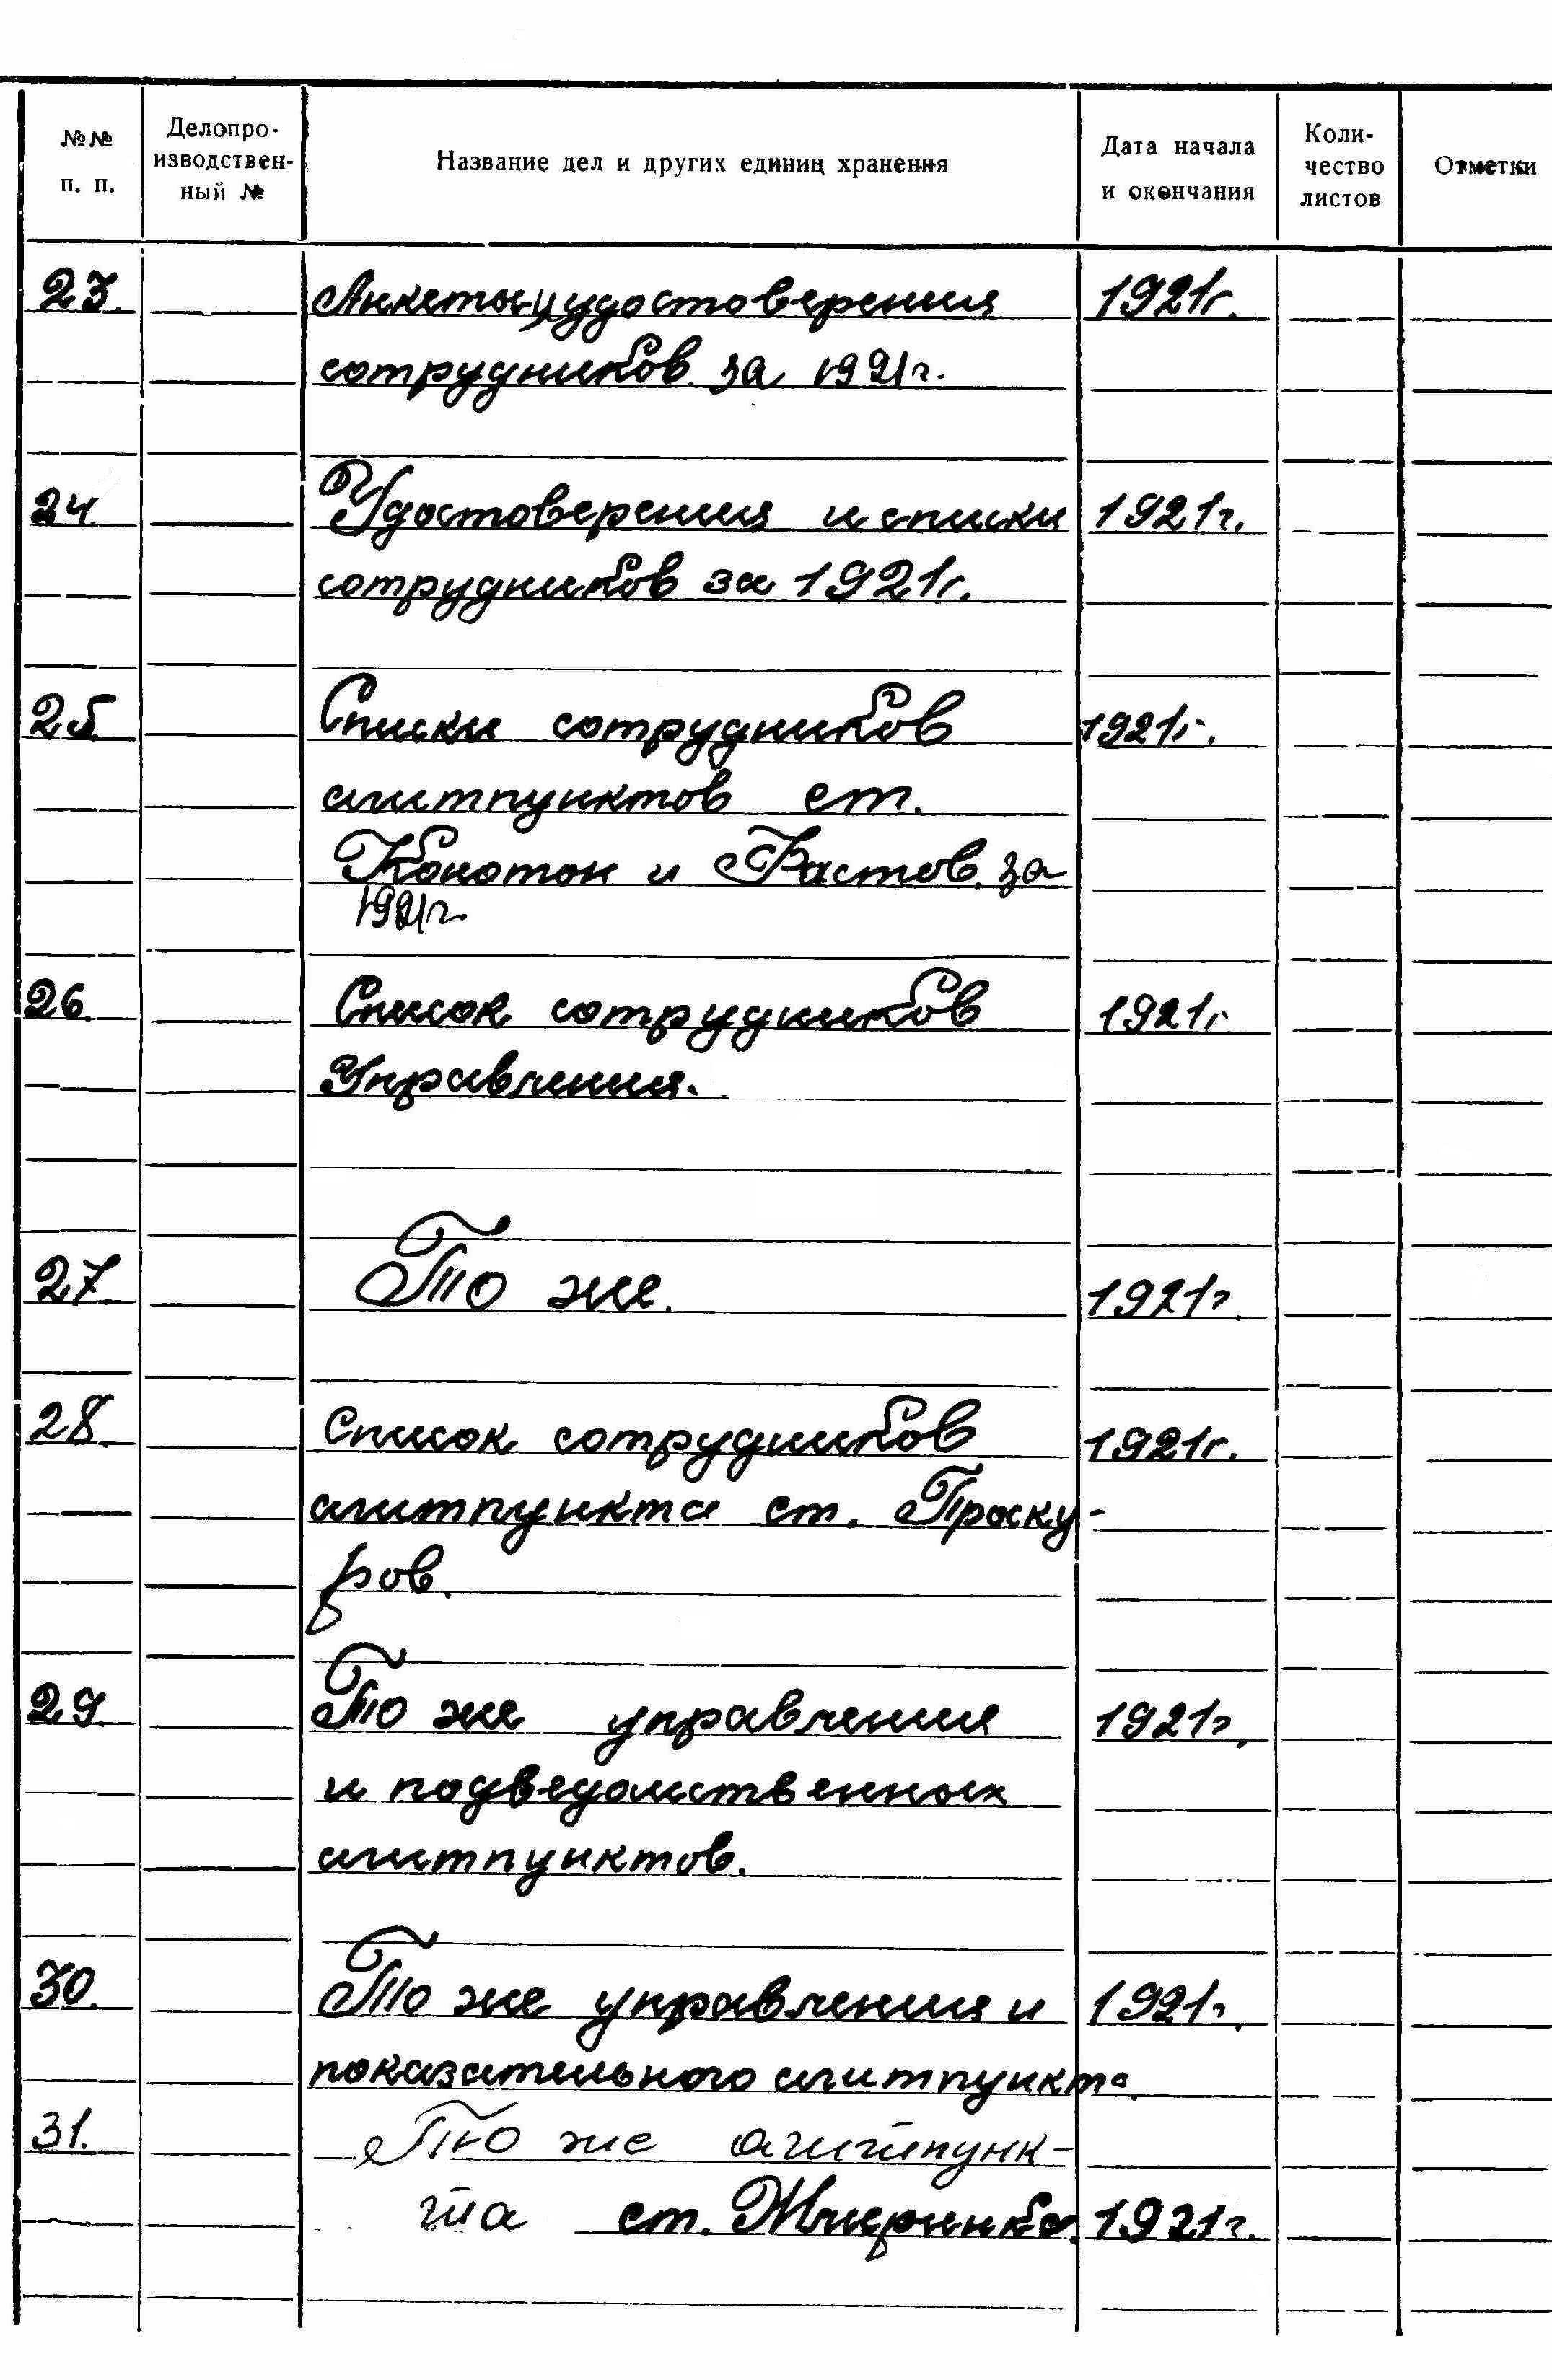 №№ п. п.
Делопро-
изводствен-
ный №
Название дел и других единиц хранения
Дата начала
и окончания
Коли-
чество
листов
Отметки
23. Анкеты и удостоверения 1921г.
сотрудников за 1921г.
24. Удостоверения и списки 1921г.
сотрудников за 1921г.
25. Списки сотрудников 1921г.
агитпунктов ст.
Конотоп и Фастов за
1921г.
26. Список сотрудников 1921г
Управления.
27. То же. 1921г.
28. Список сотрудников 1921г.
агитпункта ст. Проску-
ров.
29. То же управления 1921г.
и подведомственных
агитпунктов.
30. То же управления и 1921г.
показательного агитпункта.
31. То же агитпунк-
та ст. Жмеринка. 1921г.